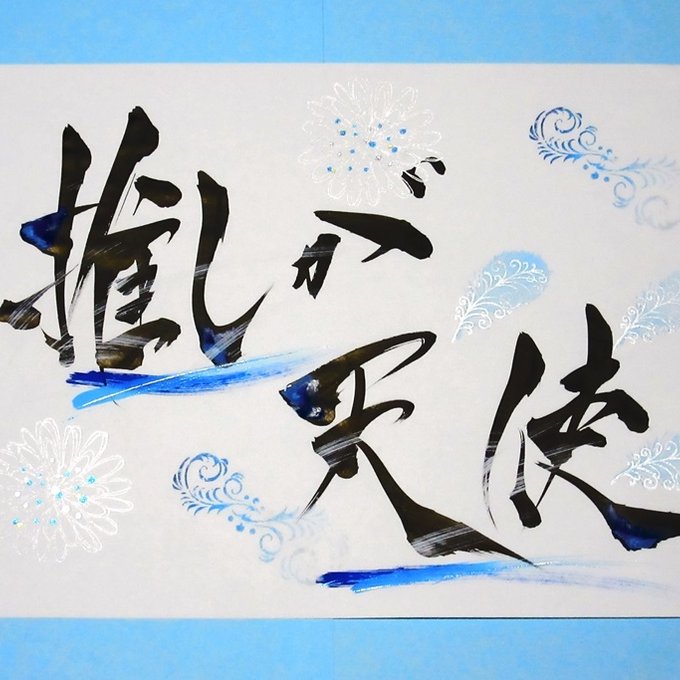 推しが
天使